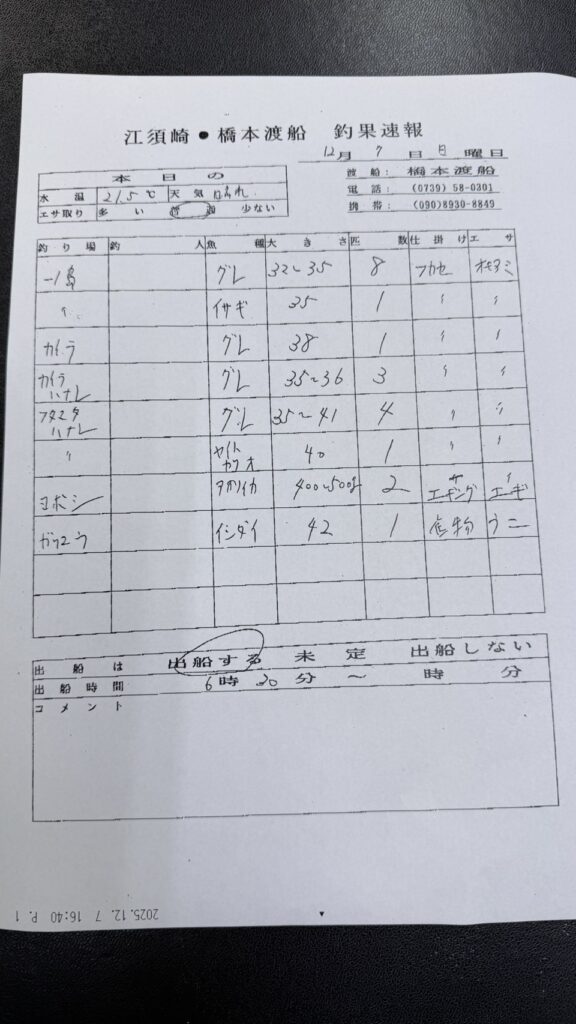 江須崎●橋本渡船 釣果速報
12月 7日 日曜日
本日の
水温 21.5℃ 天気 晴れ
エサ取り 多い 普通 少ない
渡船: 橋本渡船
電話: (0739) 58-0301
携帯: (090)8930-8849
釣り場 釣人 魚種 大きさ 匹数 仕掛け エサ
一ノ島 グレ 32〜35 8 フカセ オキアミ
〃 イサギ 35 1 〃 〃
カイラ グレ 38 1 〃 〃
カイラハナレ グレ 35〜36 3 〃 〃
フタマタハナレ グレ 35〜41 4 〃 〃
〃 ヤイトカツオ 40 1 〃 〃
ヨボシ アオリイカ 400〜500g 2 エギング エギ
イシダイ 42 1 底物 ウニ
出船は 出船する 未定 出船しない
出船時間 6時30分〜 時 分
コメント
2025.12. 7 16:40 P. 1